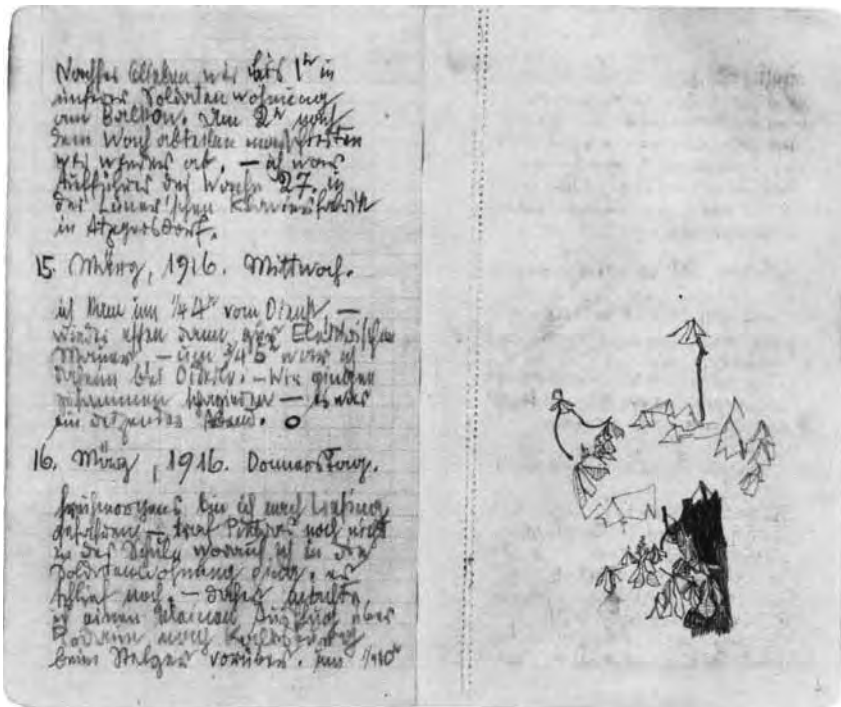 Nachher blieben wir bis 1h in
unserer Soldatenwohnung
am Balkon. Um 2h nach
dem Wach abteilen marschierten
wir wieder ab. — ich war
Aufführer der Wache 27. in
der Luner'schen Klavierfabrik
in Atzgersdorf.
15. März, 1916. Mittwoch.
ich kam um 1/4 4h vom Dienst, —
wieder essen dann zur Elektrischen
Mauer, — um 3/4 6h war ich
daheim bei Dittili. — Wir gingen
zusammen — es war
ein reizender Abend.
16. März, 1916. Donnerstag.
frühmorgens bin ich nach Liesing
gefahren — traf noch nicht
in der Schule worauf ich in die
Soldatenwohnung ging, er
schlief noch. — daher machte
ich einen kleinen Ausflug über
Rodaun nach
beim Stelzer vorüber. um 1/2 10h